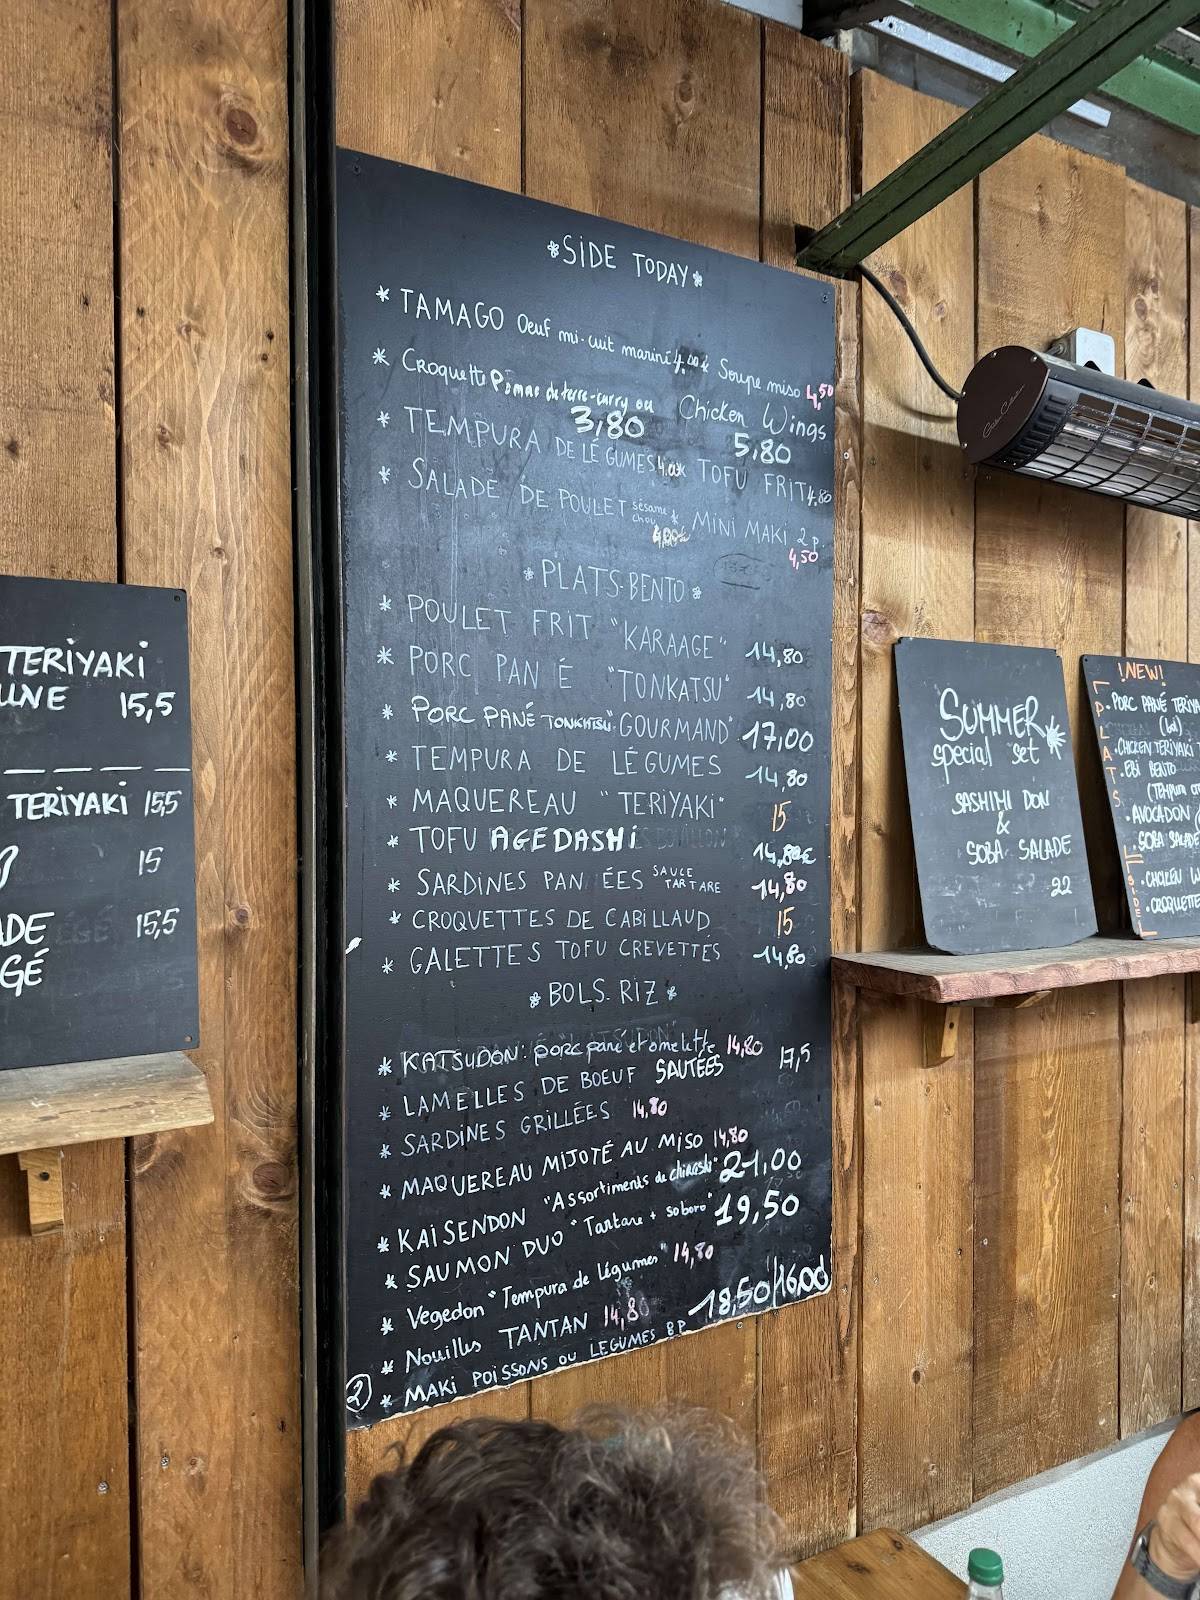 TERIYAKI
15,5
TERIYAKI 15,5
15
15,5
GÉ
SIDE TODAY
* TAMAGO Oeuf mi-cuit mariné 4,00€ Soupe miso 4,50
* Croquette Pomme de terre-curry ou Chicken Wings
3,80 5,80
* TEMPURA DE LÉGUMES TOFU FRIT 4,80
* SALADE DE POULET sésame chou 4,00€ MINI MAKI 2 p.
4,50
PLATS-BENTO
* POULET FRIT "KARAAGE" 14,80
* PORC PANÉ "TONKATSU" 14,80
* PORC PANÉ TONKATSU "GOURMAND" 17,00
* TEMPURA DE LÉGUMES 14,80
* MAQUEREAU "TERIYAKI" 15
* TOFU AGEDASHi 14,80€
* SARDINES PANÉES SAUCE TARTARE 14,80
* CROQUETTES DE CABILLAUD 15
* GALETTES TOFU CREVETTES 14,80
BOLS-RIZ
* KATSUDON: porc pané et omelette 14,80
* LAMELLES DE BOEUF SAUTÉES 17,5
* SARDINES GRILLÉES 14,80
* MAQUEREAU MIJOTÉ AU MISO 14,80
* KAISENDON "Assortiments de chirashi" 21,00
* SAUMON DUO "Tartare + soboro" 19,50
* Vegedon "Tempura de légumes" 14,80
* Nouilles TANTAN 14,80
2 * MAKI POISSONS OU LEGUMES 8P 18,50/16,00
SUMMER
special set
SASHIMI DON
&
SOBA SALADE
22
!NEW!
PLATS
.PORC PANÉ
.CHICKEN TERIYAKI
.EBI BENTO
.AVOCADON
.SOBA SALADE
SIDE
.CHICKEN
.CROQUETTE